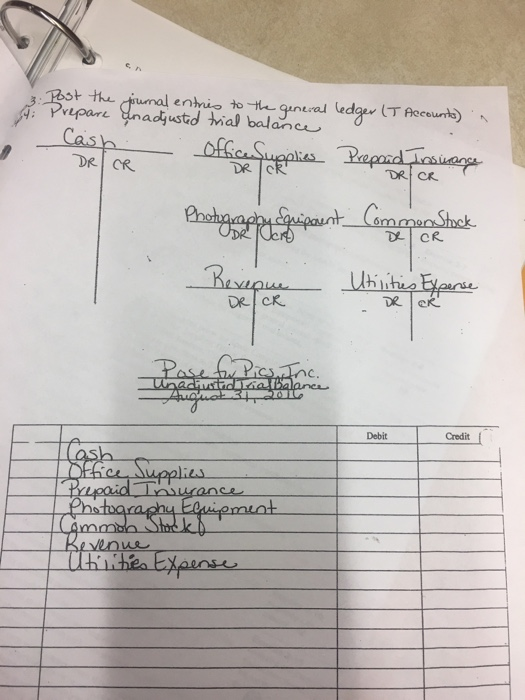 3. Post the journal entries to the general ledger (T Accounts)
4. Prepare unadjusted trial balance
Cash
DR CR
Office Supplies
DR CR
Prepaid Insurance
DR CR
Photography Equipment
DR (CR)
Common Stock
DR CR
Revenue
DR CR
Utilities Expense
DR CR
Pose for Pics, Inc.
Unadjusted Trial Balance
August 31, 2016
Debit Credit
Cash
Office Supplies
Prepaid Insurance
Photography Equipment
Common Stock
Revenue
Utilities Expense